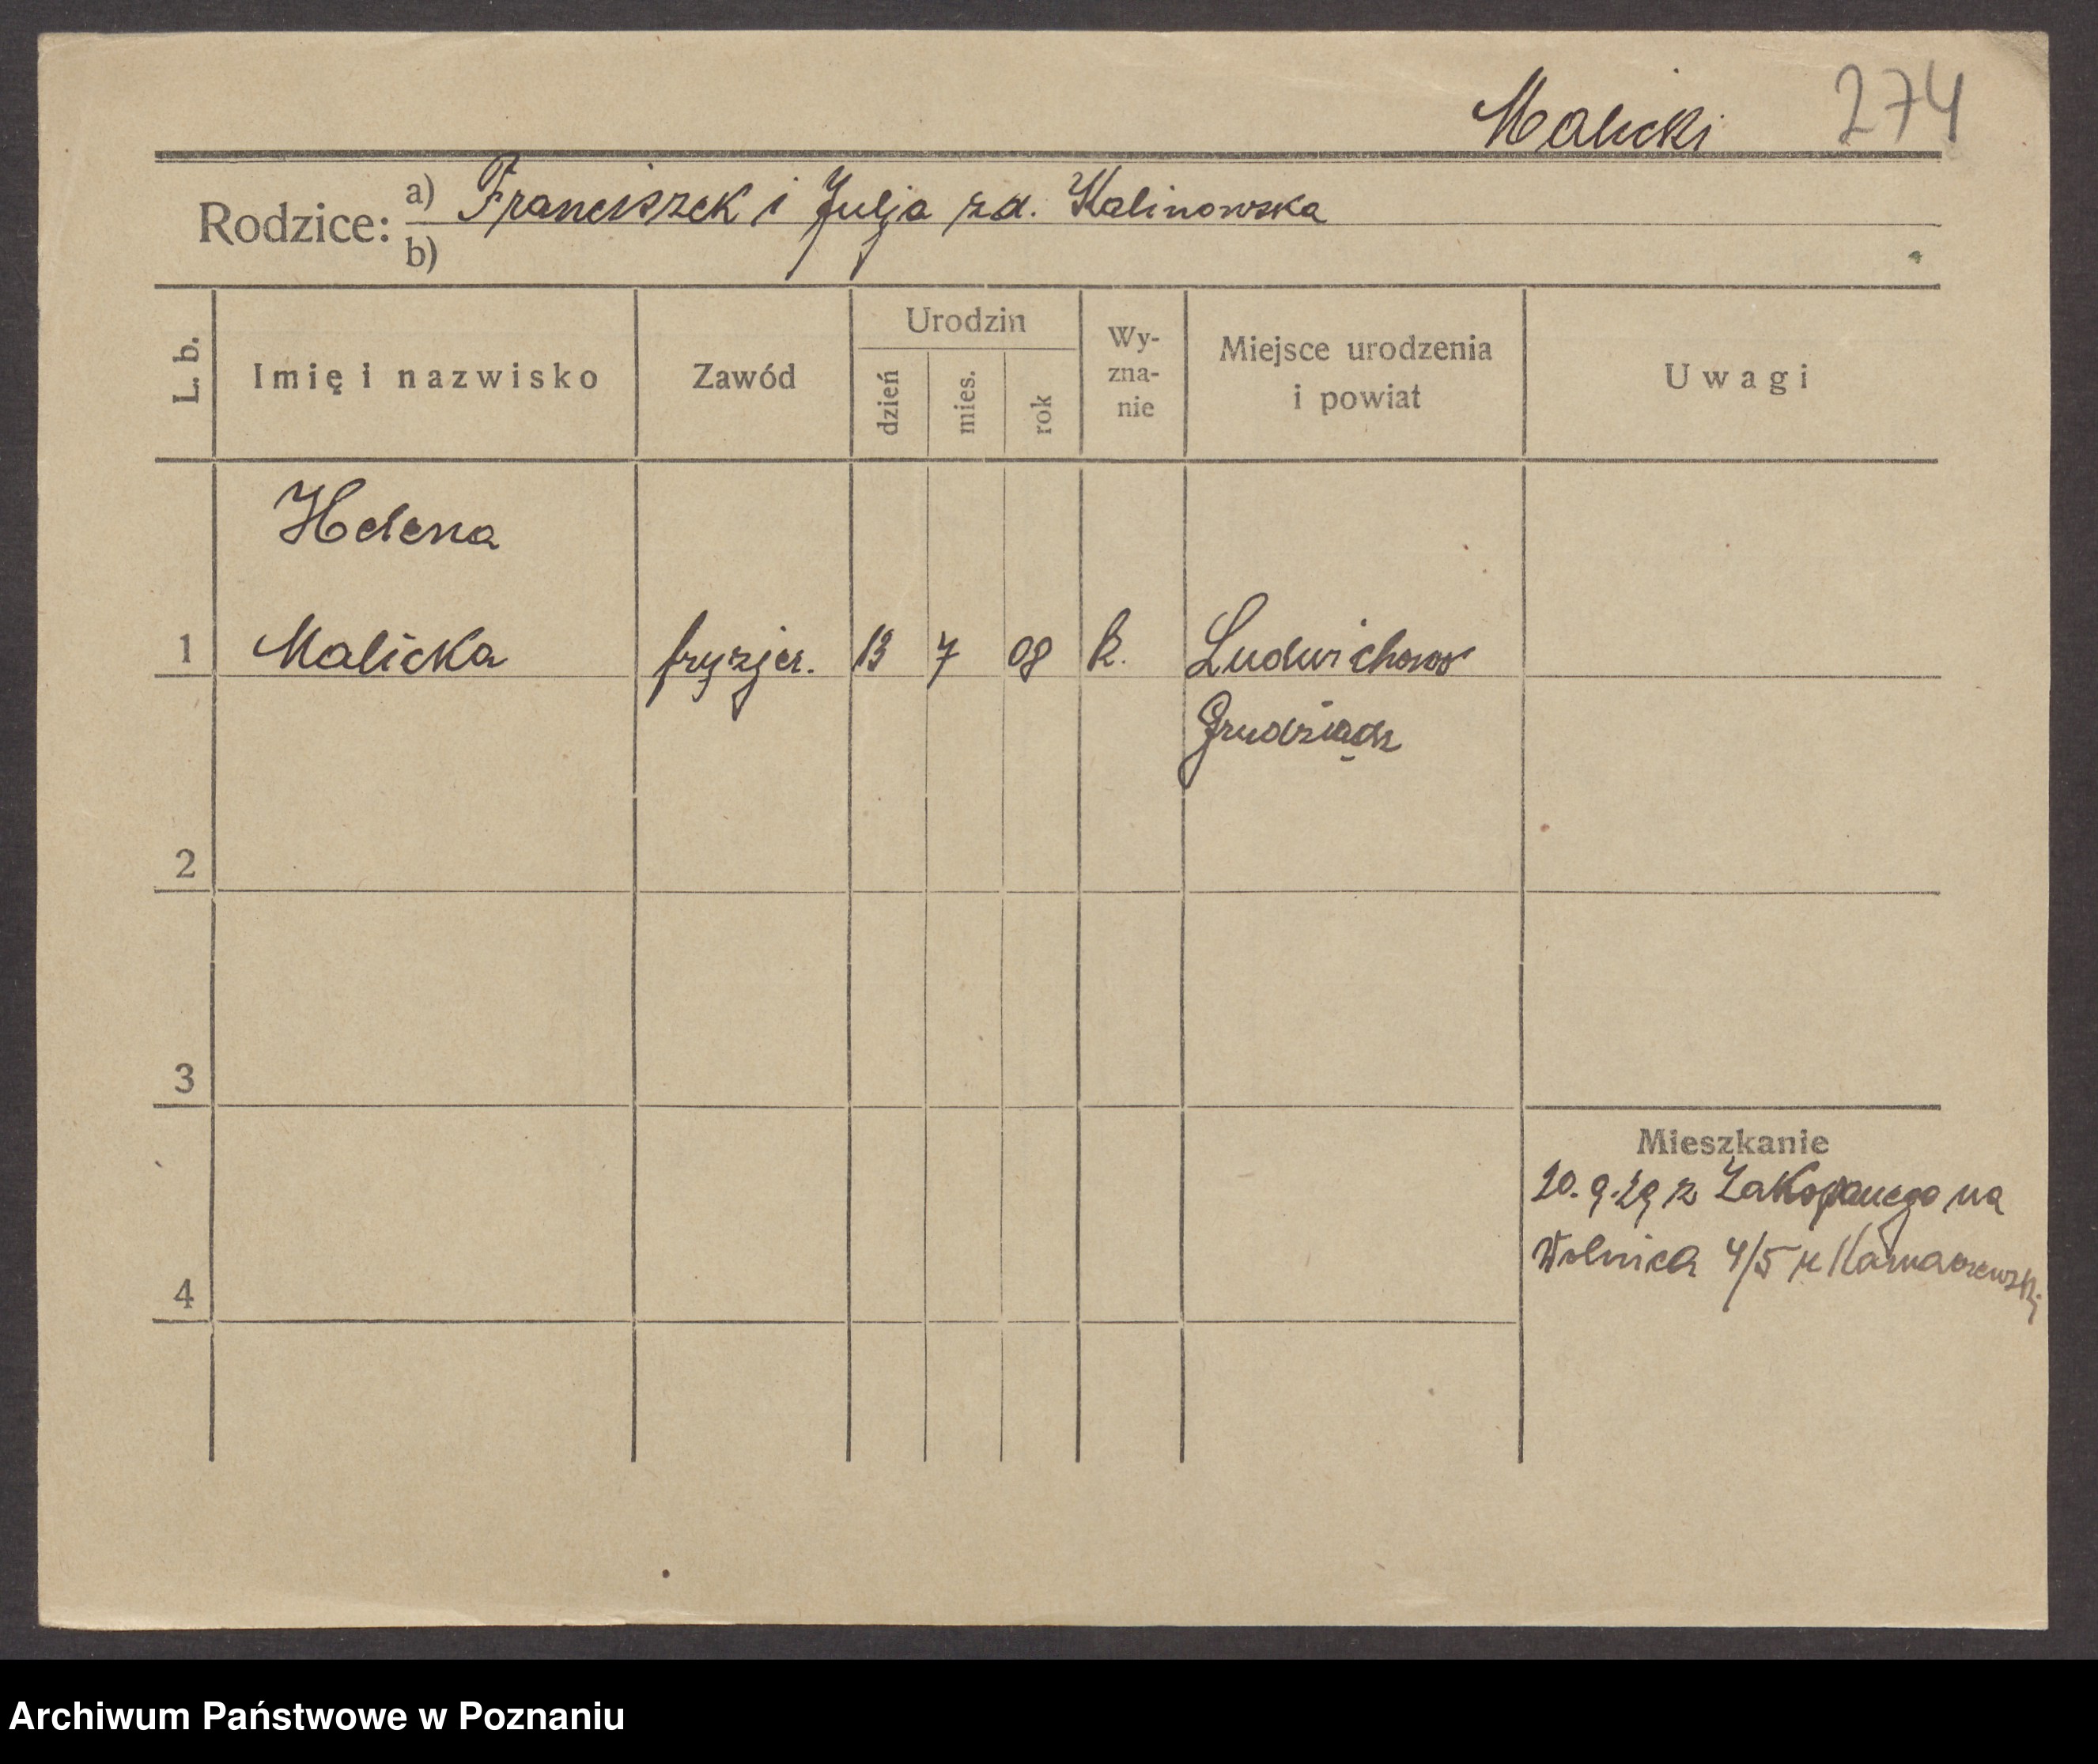 Malicki 274
Rodzice: a) Franciszek i Julja zd. Kalinowska
b)
L. b. Imię i nazwisko Zawód Urodzin dzień mies. rok Wy-
zna-
nie Miejsce urodzenia
i powiat Uwagi
Helena
1 Malicka fryzjer. 13 7 08 k. Ludwichowo
Grudziądz
2
3
Mieszkanie
20.9.29 z Zakopanego na
4 Wolnica 4/5 u
Archiwum Państwowe w Poznaniu